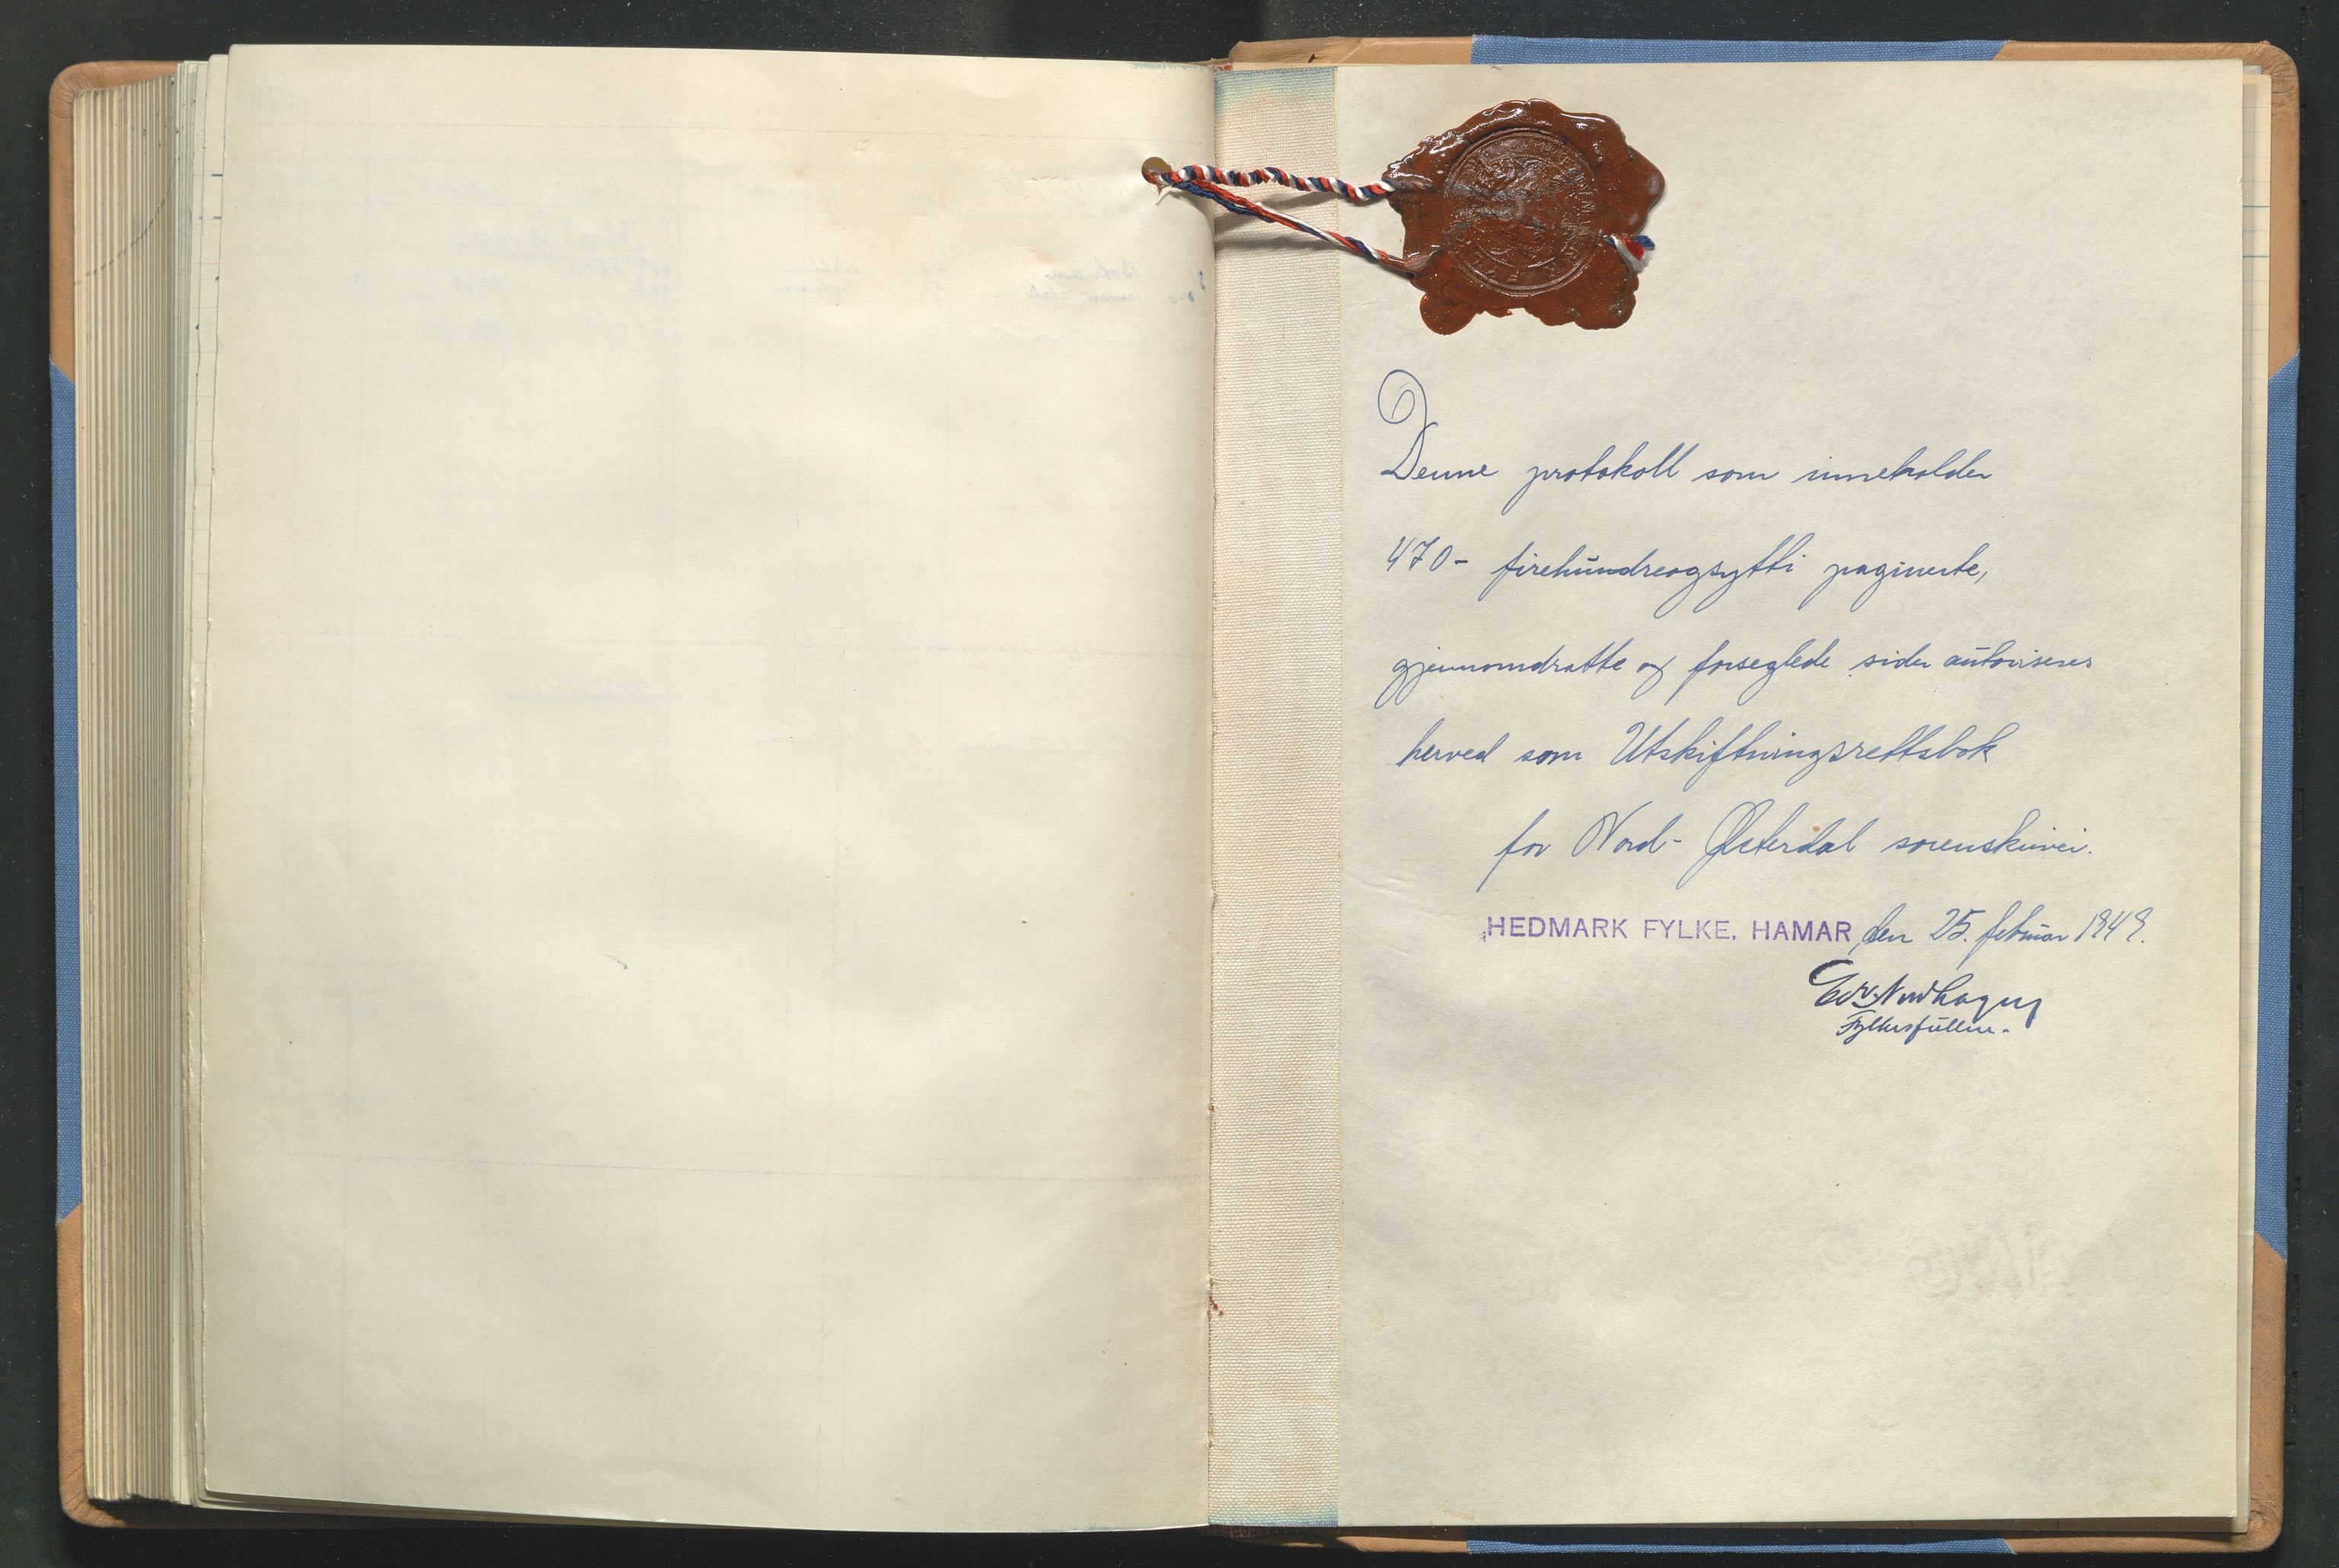 Denne protokoll som inneholder
470- firehundreogsytti paginerte,
gjennomdratte og forseglede sider autoriseres
herved som Utskiftningsrettsbok
for Nord-Østerdal sorenskriveri.
HEDMARK FYLKE. HAMAR den 25. februar 1949.
Edv. Nordhagen